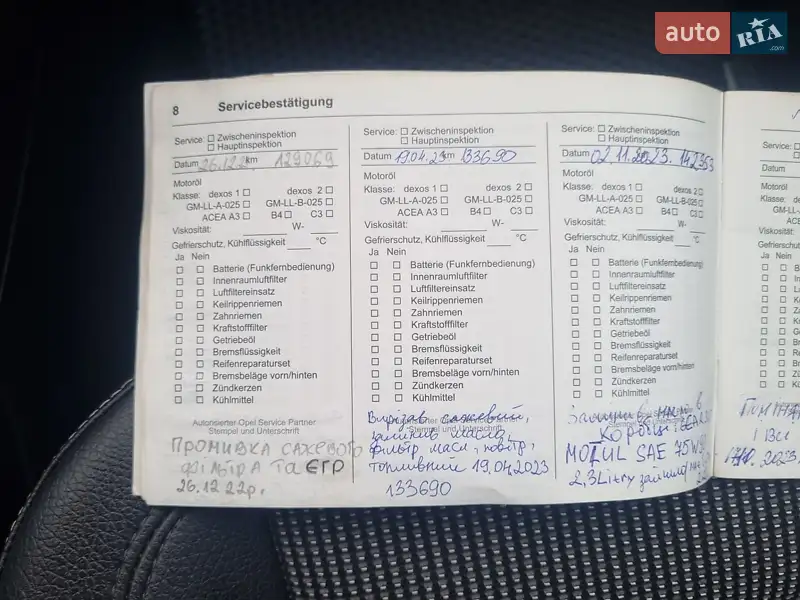 auto RIA .com
8 Servicebestätigung
Service: ☐ Zwischeninspektion
☐ Hauptinspektion
Datum 26.12.2 km 129069
Motoröl
Klasse: dexos 1 ☐ dexos 2 ☐
GM-LL-A-025 ☐ GM-LL-B-025 ☐
ACEA A3 ☐ B4 ☐ C3 ☐
Viskosität: W-
Gefrierschutz, Kühlflüssigkeit °C
Ja Nein
☐ ☐ Batterie (Funkfernbedienung)
☐ ☐ Innenraumluftfilter
☐ ☐ Luftfiltereinsatz
☐ ☐ Keilrippenriemen
☐ ☐ Zahnriemen
☐ ☐ Kraftstofffilter
☐ ☐ Getriebeöl
☐ ☐ Bremsflüssigkeit
☐ ☐ Reifenreparaturset
☐ ☐ Bremsbeläge vorn/hinten
☐ ☐ Zündkerzen
☐ ☐ Kühlmittel
Autorisierter Opel Service Partner
Stempel und Unterschrift
Промивка сажевого
фільтра та ЄГР
26.12 22р.
Service: ☐ Zwischeninspektion
☐ Hauptinspektion
Datum 19.04.23 km 133690
Motoröl
Klasse: dexos 1 ☐ dexos 2 ☐
GM-LL-A-025 ☐ GM-LL-B-025 ☐
ACEA A3 ☐ B4 ☐ C3 ☐
Viskosität: W-
Gefrierschutz, Kühlflüssigkeit °C
Ja Nein
☐ ☐ Batterie (Funkfernbedienung)
☐ ☐ Innenraumluftfilter
☐ ☐ Luftfiltereinsatz
☐ ☐ Keilrippenriemen
☐ ☐ Zahnriemen
☐ ☐ Kraftstofffilter
☐ ☐ Getriebeöl
☐ ☐ Bremsflüssigkeit
☐ ☐ Reifenreparaturset
☐ ☐ Bremsbeläge vorn/hinten
☐ ☐ Zündkerzen
☐ ☐ Kühlmittel
Вирізав сажевий,
Stempel und Unterschrift
фільтр масл, повітр,
топливний 19.04.2023
133690
Service: ☐ Zwischeninspektion
☐ Hauptinspektion
Datum 02.11.2023. 142353
Motoröl
Klasse: dexos 1 ☐ dexos 2 ☐
GM-LL-A-025 ☐ GM-LL-B-025 ☐
ACEA A3 ☐ B4 ☐ C3 ☐
Viskosität: W-
Gefrierschutz, Kühlflüssigkeit °C
Ja Nein
☐ ☐ Batterie (Funkfernbedienung)
☐ ☐ Innenraumluftfilter
☐ ☐ Luftfiltereinsatz
☐ ☐ Keilrippenriemen
☐ ☐ Zahnriemen
☐ ☐ Kraftstofffilter
☐ ☐ Getriebeöl
☐ ☐ Bremsflüssigkeit
☐ ☐ Reifenreparaturset
☐ ☐ Bremsbeläge vorn/hinten
☐ ☐ Zündkerzen
☐ ☐ Kühlmittel
коробці
MOTUL SAE 75W
2,3 Litry
Service:
Datum
Motoröl
Klasse:
Viskosität:
Gefrierschut
Ja Nein
2023